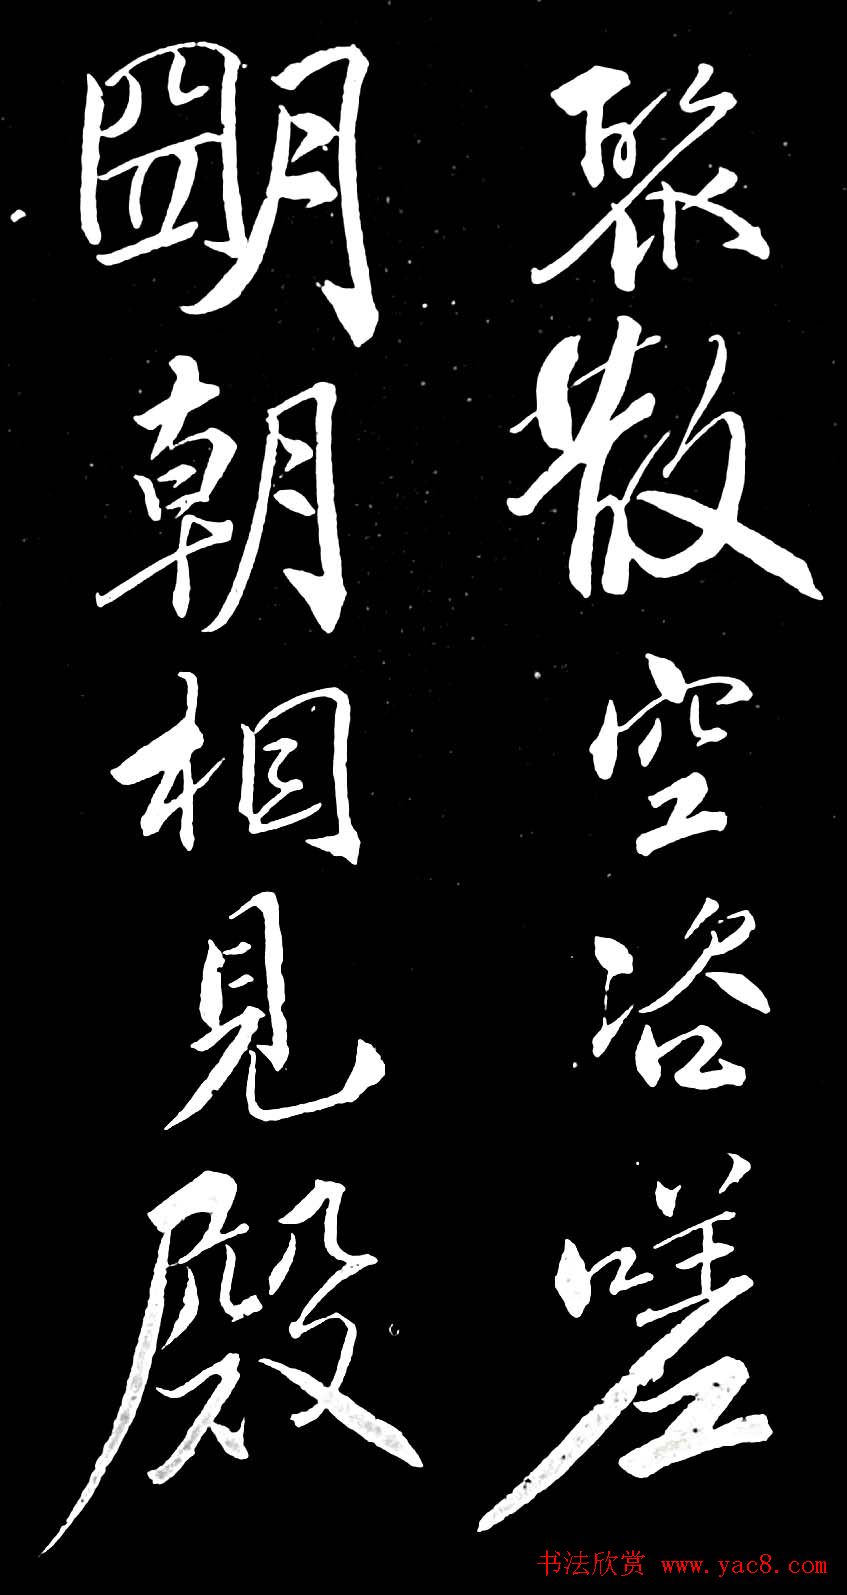 聚散空咨嗟
朙朝相見殿
书法欣赏 www.yac8.com